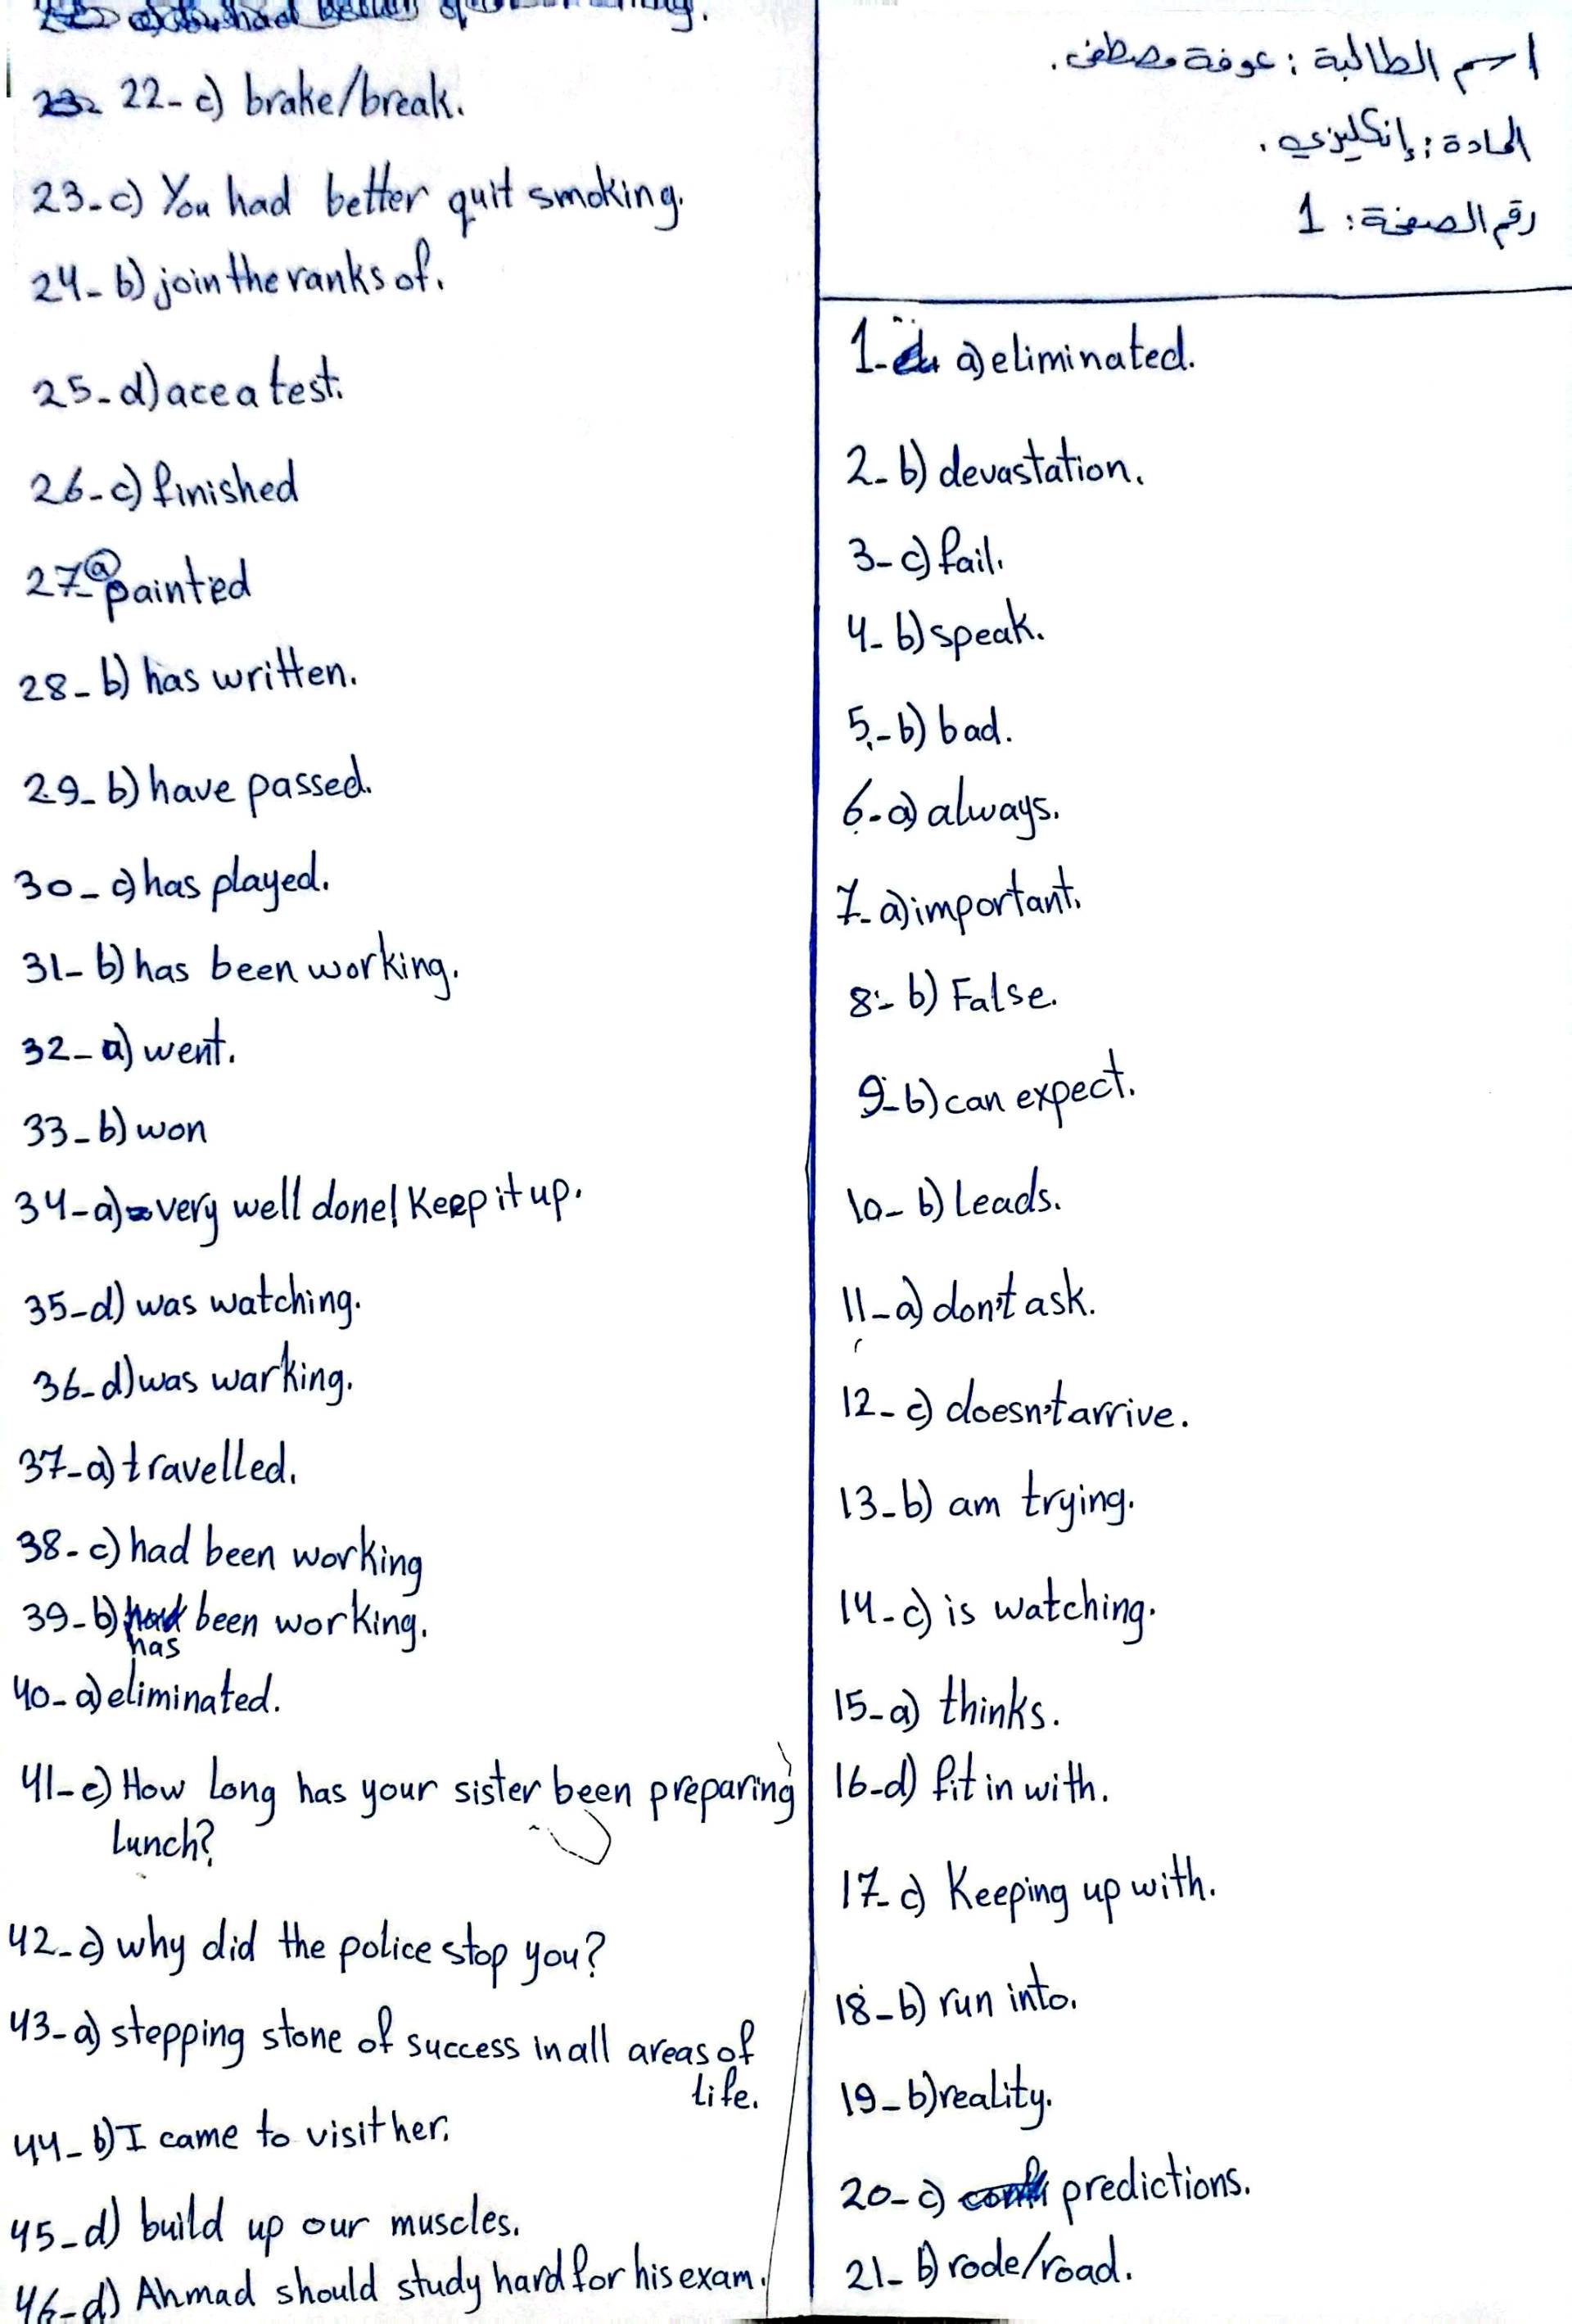 اسم الطالبة : عوفة مصطفى.
المادة : إنكليزي.
رقم الصفحة : 1
1- a) eliminated.
2- b) devastation.
3- c) fail.
4- b) speak.
5- b) bad.
6- a) always.
7- a) important.
8- b) False.
9- b) can expect.
10- b) Leads.
11- a) don't ask.
12- c) doesn't arrive.
13- b) am trying.
14- c) is watching.
15- a) thinks.
16- d) fit in with.
17- c) Keeping up with.
18- b) run into.
19- b) reality.
20- c) predictions.
21- b) rode/road.
22- c) brake/break.
23- c) You had better quit smoking.
24- b) join the ranks of.
25- d) ace a test.
26- c) finished
27- a painted
28- b) has written.
29- b) have passed.
30- c) has played.
31- b) has been working.
32- a) went.
33- b) won
34- a) very well done! Keep it up.
35- d) was watching.
36- d) was warking.
37- a) travelled.
38- c) had been working
39- b) has been working.
40- a) eliminated.
41- c) How Long has your sister been preparing
Lunch?
42- c) why did the police stop you?
43- a) stepping stone of success in all areas of
Life.
44- b) I came to visit her.
45- d) build up our muscles.
46- d) Ahmad should study hard for his exam.